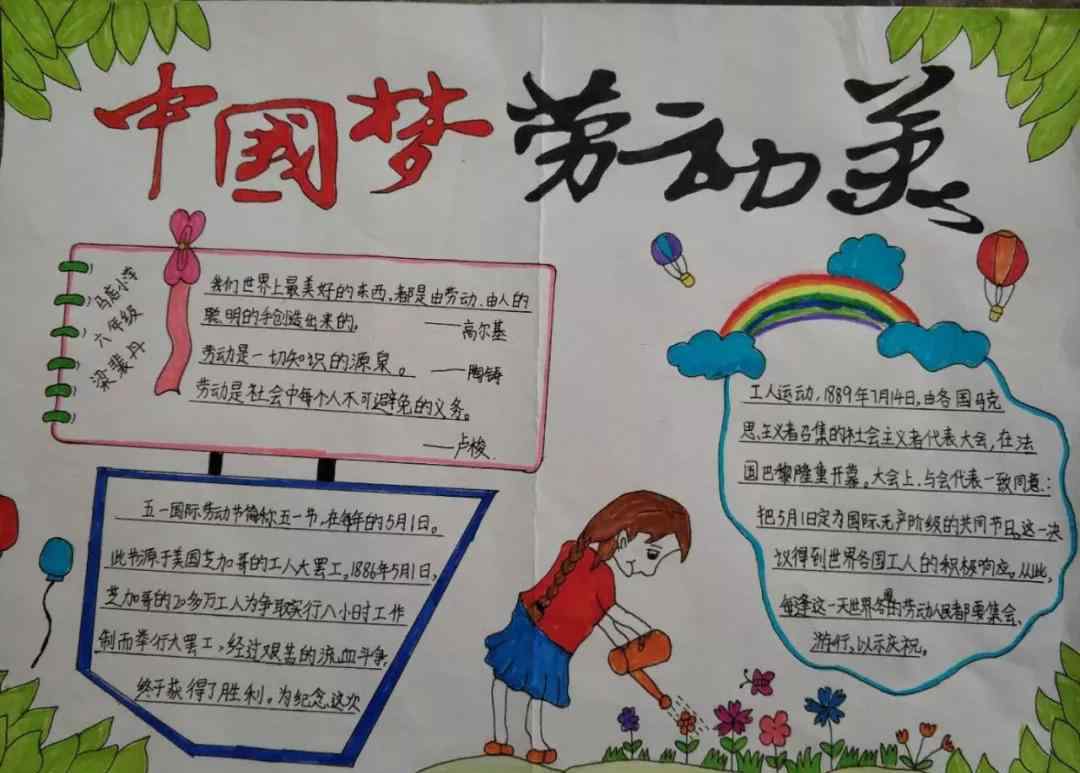 中国梦 劳动美
马庄小学
六年级
梁裴丹
我们世界上最美好的东西,都是由劳动、由人的
聪明的手创造出来的。 ——高尔基
劳动是一切知识的源泉。 ——陶铸
劳动是社会中每个人不可避免的义务。
——卢梭
五一国际劳动节简称五一节,在每年的5月1日。
此节源于美国芝加哥的工人大罢工。1886年5月1日,
芝加哥的20多万工人为争取实行八小时工作
制而举行大罢工,经过艰苦的流血斗争,
终于获得了胜利。为纪念这次
工人运动,1889年7月14日,由各国马克
思主义者召集的社会主义者代表大会,在法
国巴黎隆重开幕。大会上,与会代表一致同意:
把5月1日定为国际无产阶级的共同节日。这一决
议得到世界各国工人的积极响应。从此,
每逢这一天世界各国的劳动人民都要集会、
游行,以示庆祝。